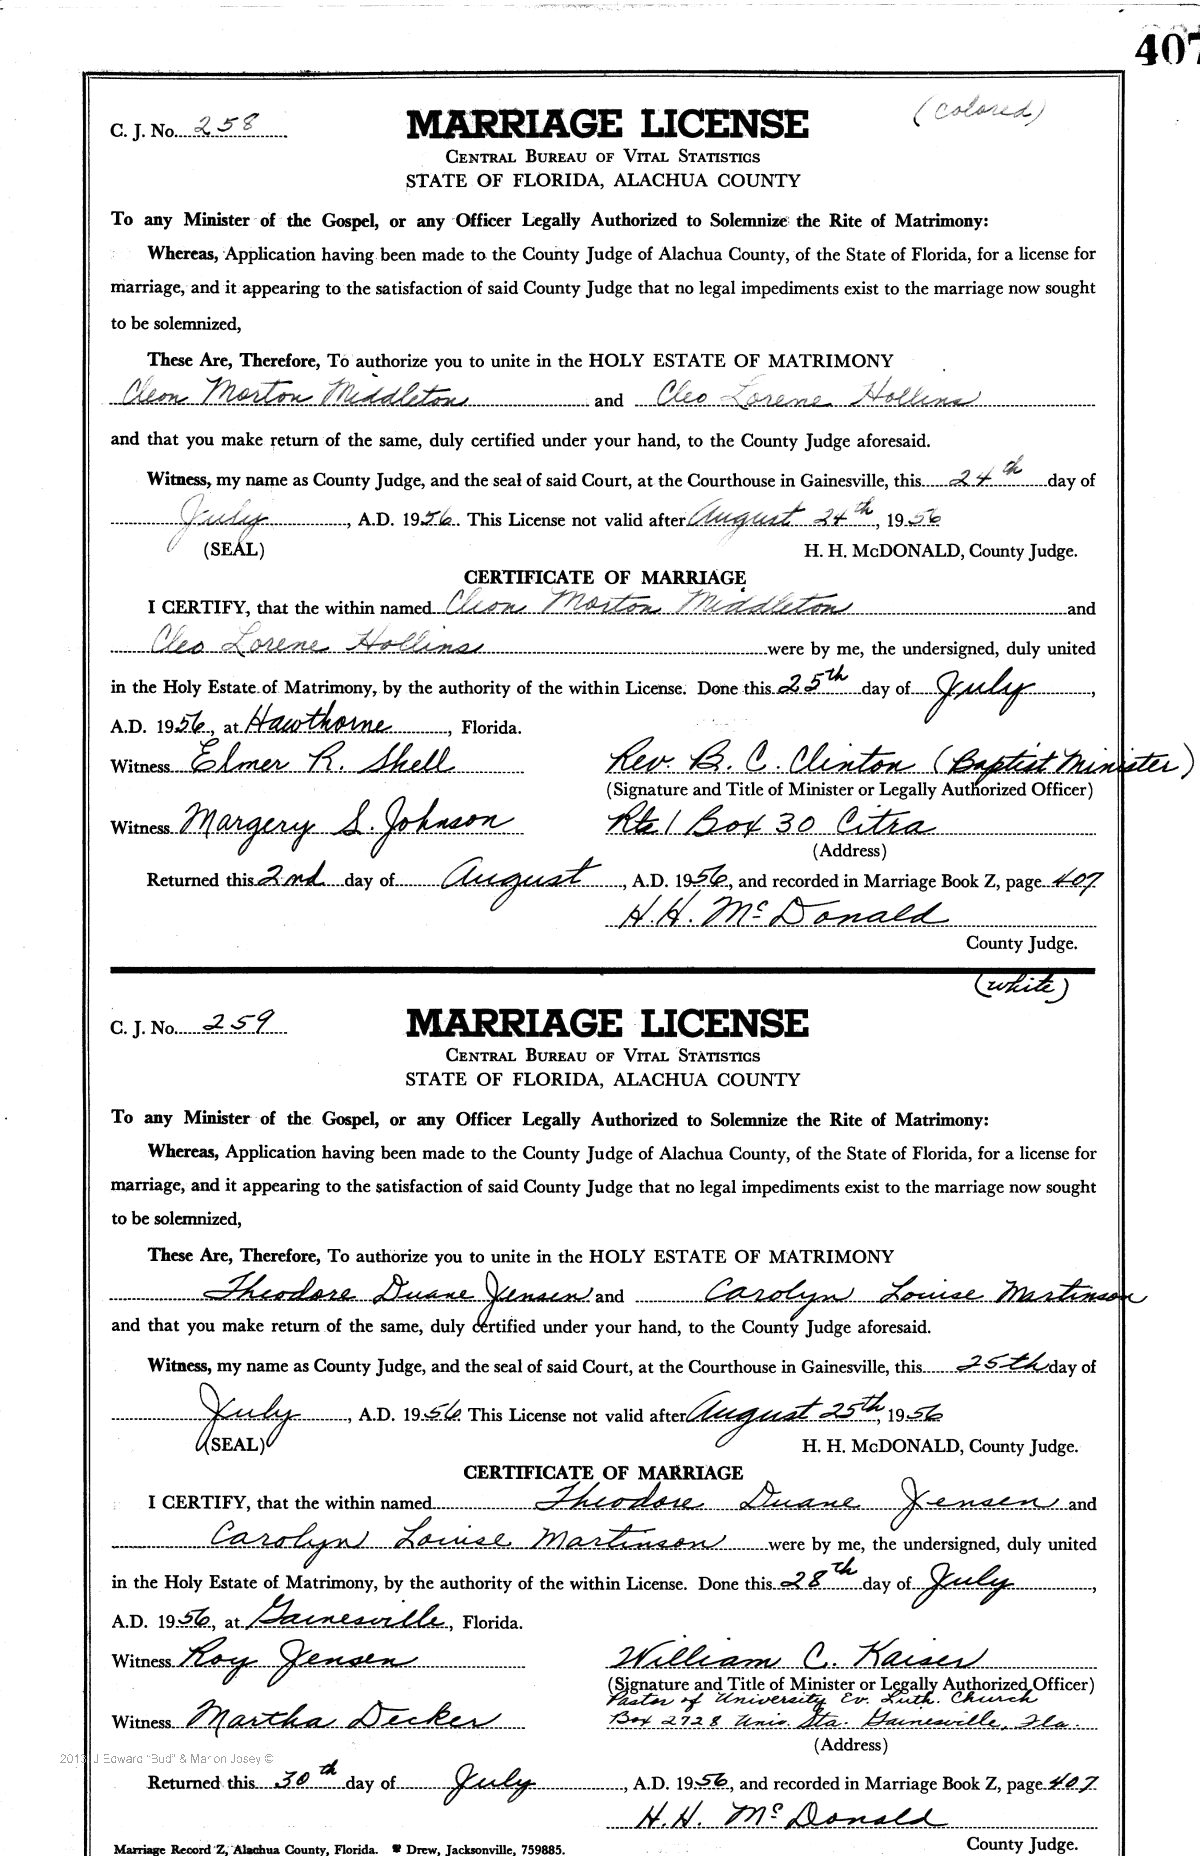 407
C. J. No. 258 MARRIAGE LICENSE (colored)
CENTRAL BUREAU OF VITAL STATISTICS
STATE OF FLORIDA, ALACHUA COUNTY
To any Minister of the Gospel, or any Officer Legally Authorized to Solemnize the Rite of Matrimony:
Whereas, Application having been made to the County Judge of Alachua County, of the State of Florida, for a license for
marriage, and it appearing to the satisfaction of said County Judge that no legal impediments exist to the marriage now sought
to be solemnized,
These Are, Therefore, To authorize you to unite in the HOLY ESTATE OF MATRIMONY
Cleon Morton Middleton and Cleo Lorene Hollins
and that you make return of the same, duly certified under your hand, to the County Judge aforesaid.
Witness, my name as County Judge, and the seal of said Court, at the Courthouse in Gainesville, this 24th day of
July, A.D. 1956. This License not valid after August 24th, 1956
(SEAL) H. H. McDONALD, County Judge.
CERTIFICATE OF MARRIAGE
I CERTIFY, that the within named Cleon Morton Middleton and
Cleo Lorene Hollins were by me, the undersigned, duly united
in the Holy Estate of Matrimony, by the authority of the within License. Done this 25th day of July,
A.D. 1956, at Hawthorne, Florida.
Witness Elmer R. Shell Rev. B. C. Clinton (Baptist Minister)
(Signature and Title of Minister or Legally Authorized Officer)
Witness Margery S. Johnson Rte 1 Box 30 Citra
(Address)
Returned this 2nd day of August, A.D. 1956, and recorded in Marriage Book Z, page 407
H. H. McDonald
County Judge.
(white)
C. J. No. 259 MARRIAGE LICENSE
CENTRAL BUREAU OF VITAL STATISTICS
STATE OF FLORIDA, ALACHUA COUNTY
To any Minister of the Gospel, or any Officer Legally Authorized to Solemnize the Rite of Matrimony:
Whereas, Application having been made to the County Judge of Alachua County, of the State of Florida, for a license for
marriage, and it appearing to the satisfaction of said County Judge that no legal impediments exist to the marriage now sought
to be solemnized,
These Are, Therefore, To authorize you to unite in the HOLY ESTATE OF MATRIMONY
Theodore Duane Jensen and Carolyn Louise Martinson
and that you make return of the same, duly certified under your hand, to the County Judge aforesaid.
Witness, my name as County Judge, and the seal of said Court, at the Courthouse in Gainesville, this 25th day of
July, A.D. 1956. This License not valid after August 25th, 1956
(SEAL) H. H. McDONALD, County Judge.
CERTIFICATE OF MARRIAGE
I CERTIFY, that the within named Theodore Duane Jensen and
Carolyn Louise Martinson were by me, the undersigned, duly united
in the Holy Estate of Matrimony, by the authority of the within License. Done this 28th day of July,
A.D. 1956, at Gainesville, Florida.
Witness Roy Jensen William C. Kaiser
(Signature and Title of Minister or Legally Authorized Officer)
Pastor of University Ev. Luth. Church
Witness Martha Decker Box 2728 Univ. Sta. Gainesville, Fla.
(Address)
2013 J Edward "Bud" & Marion Josey ©
Returned this 30th day of July, A.D. 1956, and recorded in Marriage Book Z, page 407
H. H. McDonald
County Judge.
Marriage Record Z, Alachua County, Florida. Drew, Jacksonville, 759885.